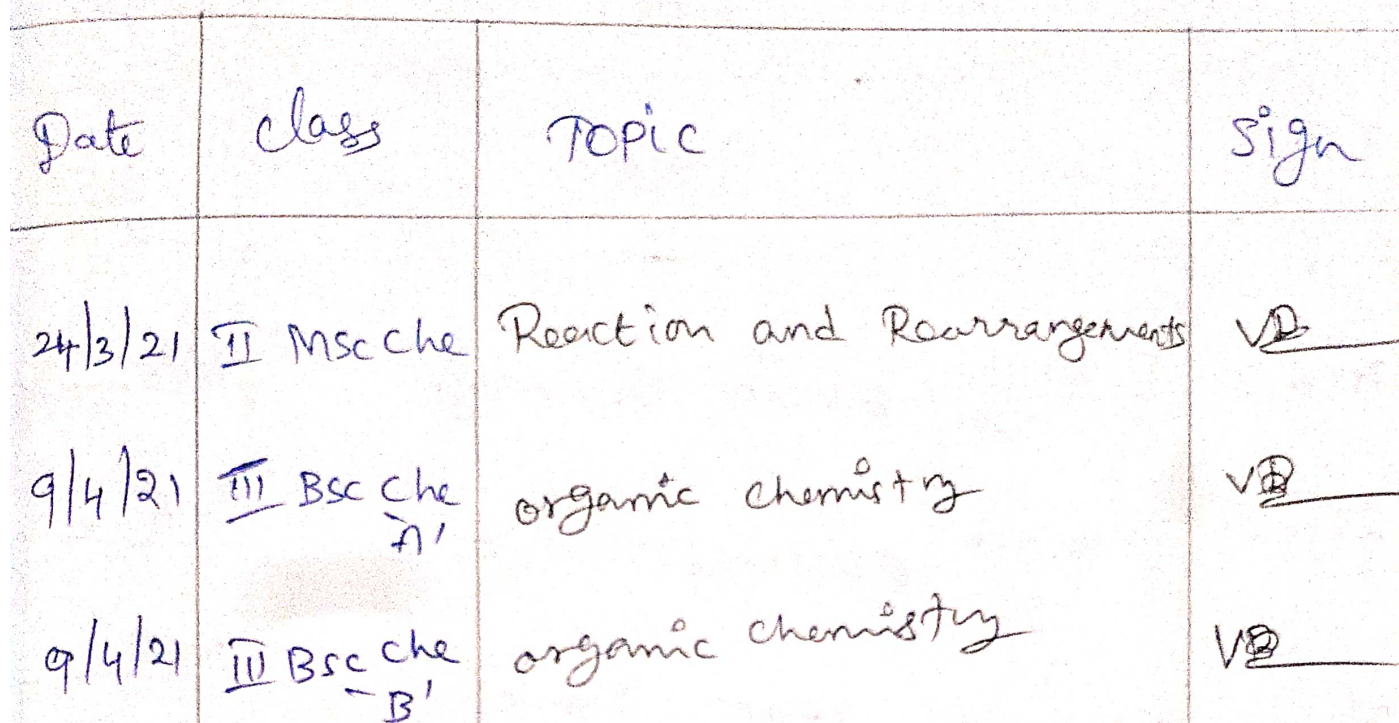 Date class Topic Sign
24/3/21 II Msc Che Reaction and Rearrangements
9/4/21 III Bsc Che organic chemistry
'A'
9/4/21 III Bsc Che organic chemistry
'B'